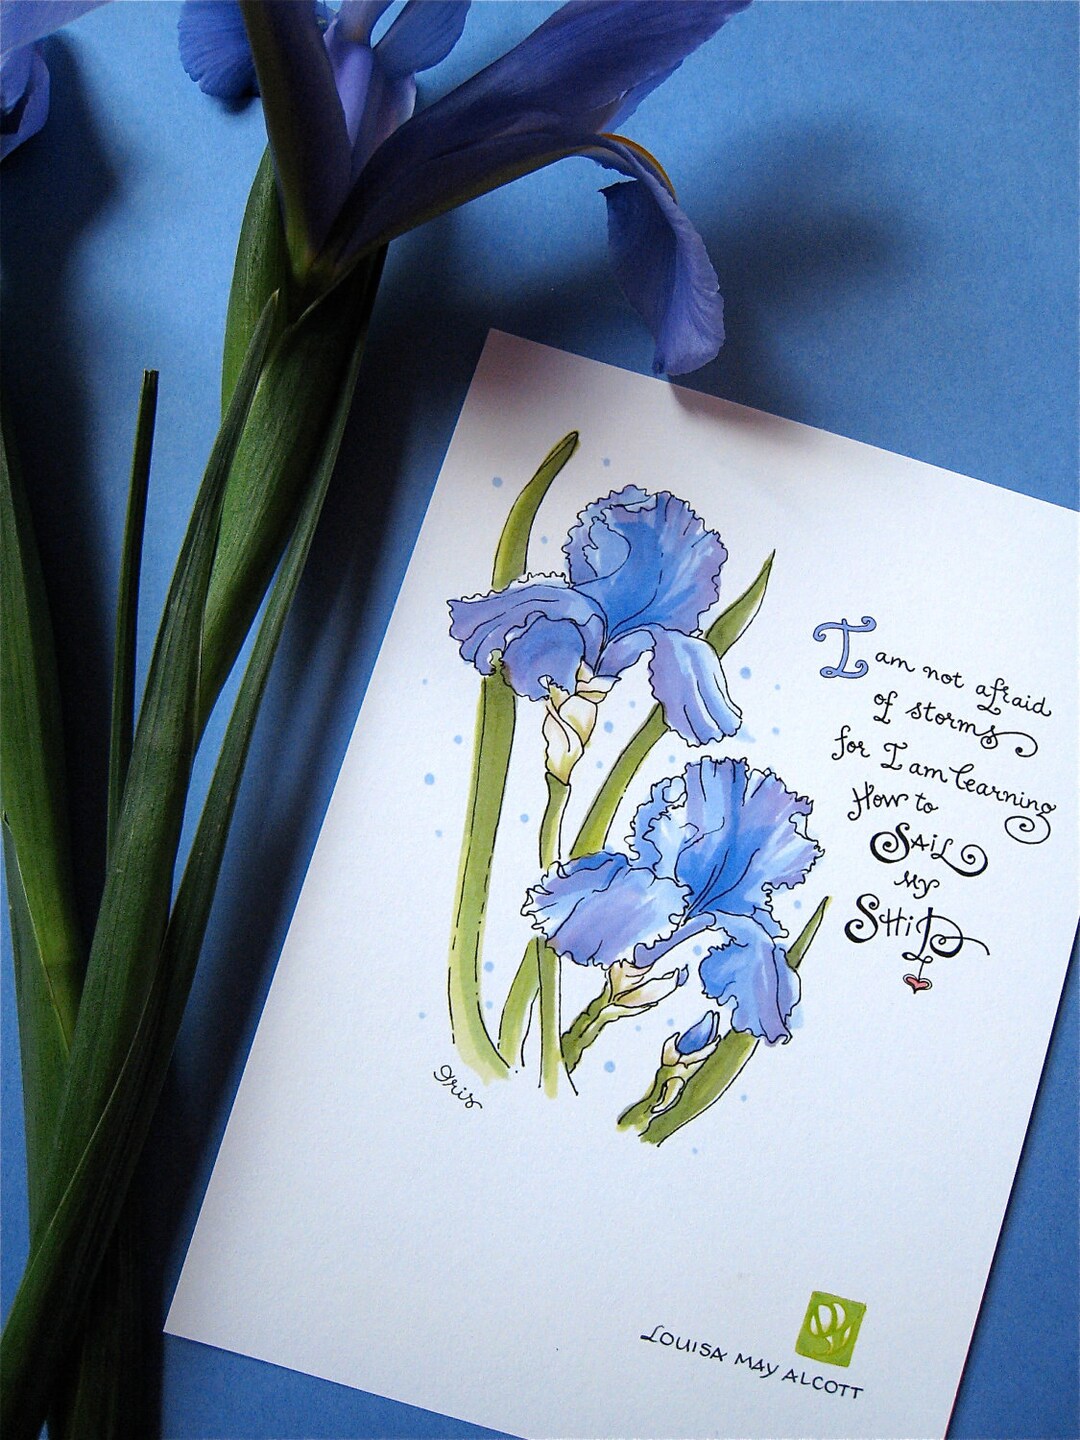 I am not afraid
of storms
for I am learning
How to
SAIL
my
SHiP
Iris
LOUISA MAY ALCOTT